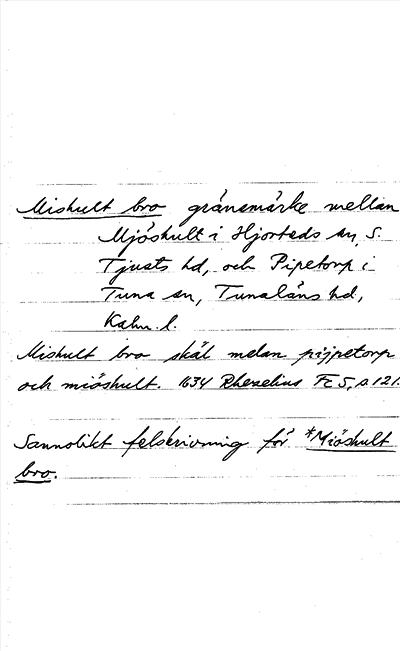 Mishult bro gränsmärke mellan
Mjöshult i Hjorteds sn, S.
Tjusts hd, och Pipetorp i
Tuna sn, Tunaläns hd,
Kalm. l.
Mishult bro skäl melan pijpetorp
och miöshult. 1634 Rhezelius FES, s 121.
Sannolikt felskrivning för *Miöshult
bro.